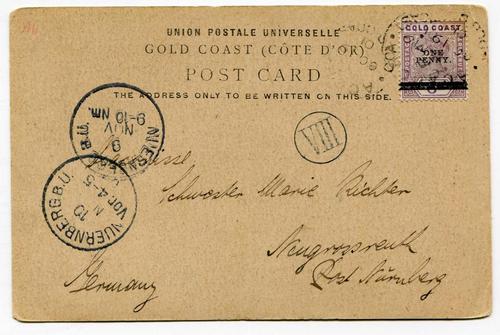 UNION POSTALE UNIVERSELLE
GOLD COAST (CÔTE D'OR)
POST CARD
THE ADDRESS ONLY TO BE WRITTEN ON THIS SIDE.
GOLD COAST
ONE
PENNY.
NUERNBERG B.U.
9
NOV
9-10 Nm.
VIII
NUERNBERG B.U.
10
N
Vor 4-5
Schwester Marie Richter
Neugrossreuth
Post Nürnberg
Germany